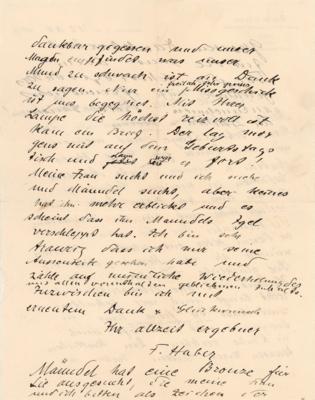 dankbar gegessen und unser
Magen empfindet was unser
Mund zu schwach ist an Dank
zu sagen. Nur ein Missgeschick
ist uns begegnet. Mit Ihrer
Lampe die höchst reizvoll ist
kam ein Brief. Der lag mor
gens mit auf dem Geburtstags
tisch und dann war es fort!
Meine Frau sucht und ich suche
und Männdel sucht, aber keines
hat ihn mehr erblickt und es
scheint dass ihn Männdels Igel
verschleppt hat. Ich bin sehr
traurig dass ich nur seine
Aussenseite gesehen habe und
zähle auf mündliche Wiederholung des
mit allen vermuthalben geblichenen Inhalts.
Inzwischen bin ich mit
erneutem Dank & Glückwunsch
Ihr allzeit ergebner
F. Haber
Männdel hat eine Bronze für
Sie ausgesucht, die meine Frau
und ich bitten als Zeichen der